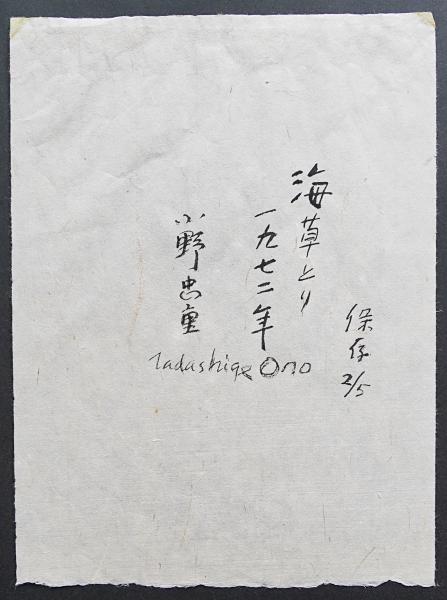 保存 2/5
海草とり
一九七二年
小野忠重
Tadashige Ono